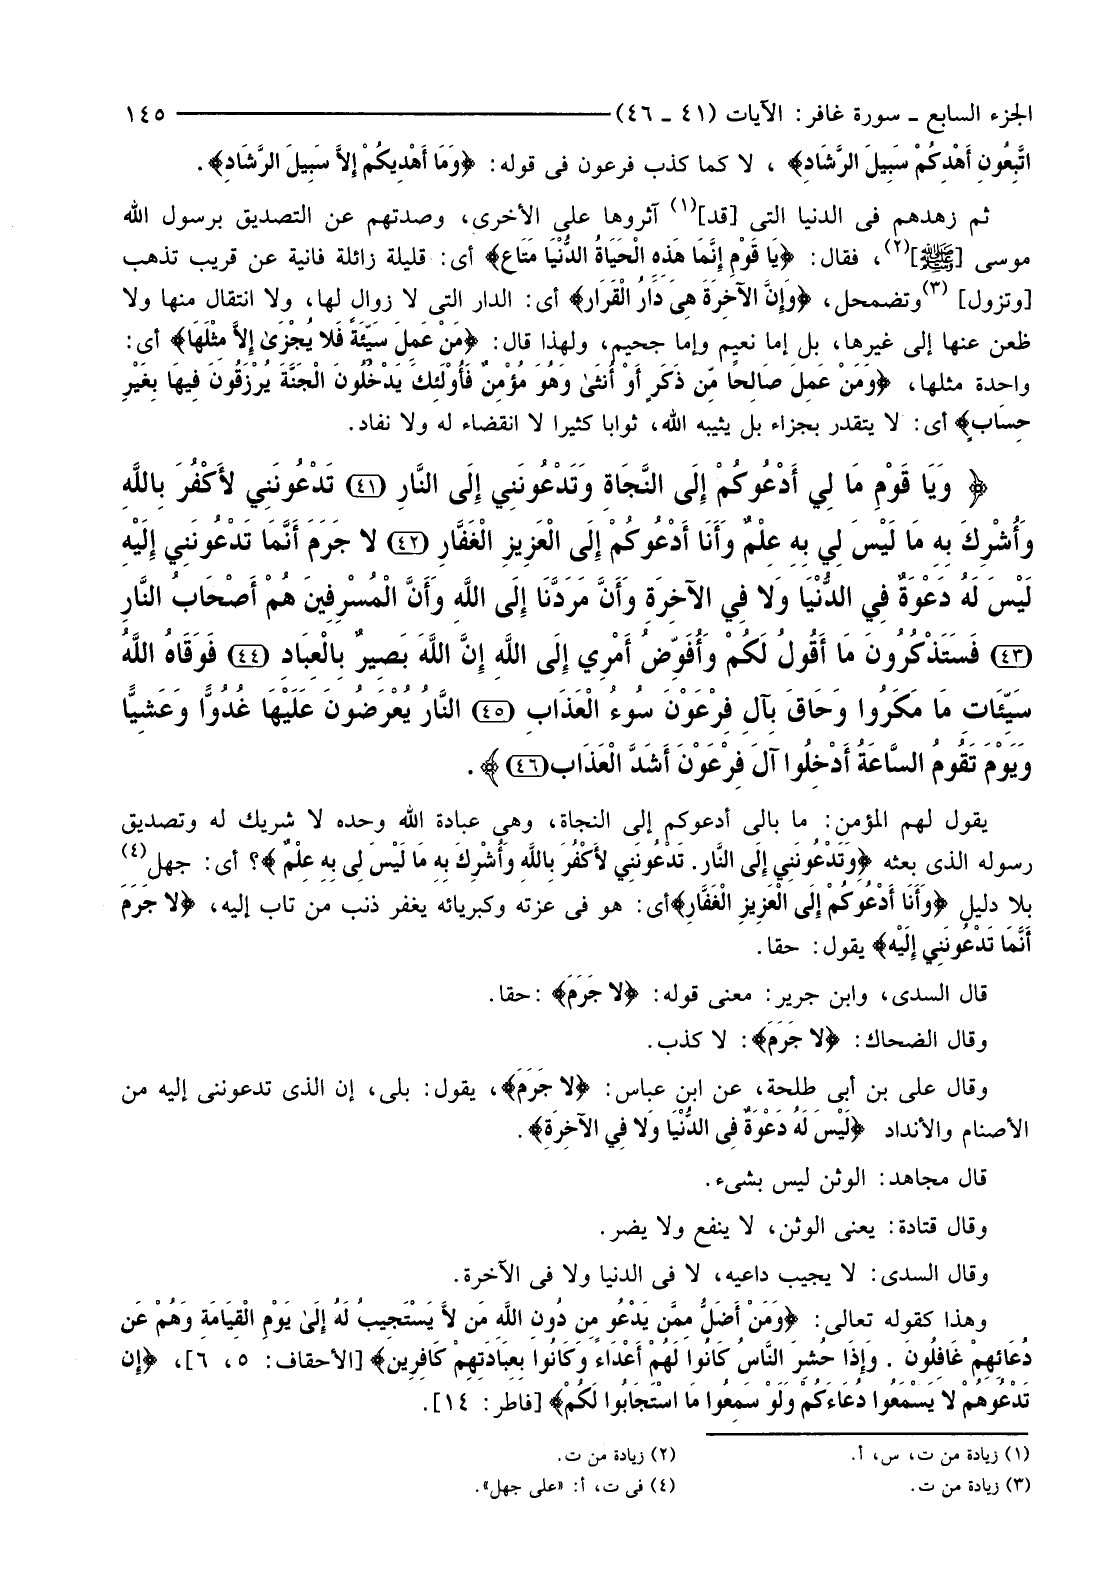 الجزء السابع ـ سورة غافر: الآيات (٤١ ـ ٤٦) ١٤٥
اتَّبِعُونِ أَهْدِكُمْ سَبِيلَ الرَّشَادِ﴾ ، لا كما كذب فرعون فى قوله: ﴿وَمَا أَهْدِيكُمْ إِلاَّ سَبِيلَ الرَّشَادِ﴾.
ثم زهدهم فى الدنيا التى [قد](١) آثروها على الأخرى، وصدتهم عن التصديق برسول الله
موسى [ﷺ](٢)، فقال: ﴿يَا قَوْمِ إِنَّمَا هَذِهِ الْحَيَاةُ الدُّنْيَا مَتَاع﴾ أى: قليلة زائلة فانية عن قريب تذهب
[وتزول] (٣)وتضمحل، ﴿وَإِنَّ الآخِرَةَ هِيَ دَارُ الْقَرَار﴾ أى: الدار التى لا زوال لها، ولا انتقال منها ولا
ظعن عنها إلى غيرها، بل إما نعيم وإما جحيم، ولهذا قال: ﴿مَنْ عَمِلَ سَيِّئَةً فَلا يُجْزَىٰ إِلاَّ مِثْلَهَا﴾ أى:
واحدة مثلها، ﴿وَمَنْ عَمِلَ صَالِحًا مِّن ذَكَرٍ أَوْ أُنثَىٰ وَهُوَ مُؤْمِنٌ فَأُوْلَئِكَ يَدْخُلُونَ الْجَنَّةَ يُرْزَقُونَ فِيهَا بِغَيْرِ
حِسَابٍ﴾ أى: لا يتقدر بجزاء بل يثيبه الله، ثوابا كثيرا لا انقضاء له ولا نفاد.
﴿ وَيَا قَوْمِ مَا لِي أَدْعُوكُمْ إِلَى النَّجَاةِ وَتَدْعُونَنِي إِلَى النَّارِ (٤١) تَدْعُونَنِي لأَكْفُرَ بِاللَّهِ
وَأُشْرِكَ بِهِ مَا لَيْسَ لِي بِهِ عِلْمٌ وَأَنَا أَدْعُوكُمْ إِلَى الْعَزِيزِ الْغَفَّارِ (٤٢) لا جَرَمَ أَنَّمَا تَدْعُونَنِي إِلَيْهِ
لَيْسَ لَهُ دَعْوَةٌ فِي الدُّنْيَا وَلا فِي الآخِرَةِ وَأَنَّ مَرَدَّنَا إِلَى اللَّهِ وَأَنَّ الْمُسْرِفِينَ هُمْ أَصْحَابُ النَّارِ
(٤٣) فَسَتَذْكُرُونَ مَا أَقُولُ لَكُمْ وَأُفَوِّضُ أَمْرِي إِلَى اللَّهِ إِنَّ اللَّهَ بَصِيرٌ بِالْعِبَادِ (٤٤) فَوَقَاهُ اللَّهُ
سَيِّئَاتِ مَا مَكَرُوا وَحَاقَ بِآلِ فِرْعَوْنَ سُوءُ الْعَذَابِ (٤٥) النَّارُ يُعْرَضُونَ عَلَيْهَا غُدُوًّا وَعَشِيًّا
وَيَوْمَ تَقُومُ السَّاعَةُ أَدْخِلُوا آلَ فِرْعَوْنَ أَشَدَّ الْعَذَابِ(٤٦)﴾.
يقول لهم المؤمن: ما بالى أدعوكم إلى النجاة، وهى عبادة الله وحده لا شريك له وتصديق
رسوله الذى بعثه ﴿وَتَدْعُونَنِي إِلَى النَّارِ. تَدْعُونَنِي لأَكْفُرَ بِاللَّهِ وَأُشْرِكَ بِهِ مَا لَيْسَ لِي بِهِ عِلْمٌ ﴾؟ أى: جهل(٤)
بلا دليل ﴿وَأَنَا أَدْعُوكُمْ إِلَى الْعَزِيزِ الْغَفَّارِ﴾أى: هو فى عزته وكبريائه يغفر ذنب من تاب إليه، ﴿لا جَرَمَ
أَنَّمَا تَدْعُونَنِي إِلَيْهِ﴾ يقول: حقا.
قال السدى، وابن جرير: معنى قوله: ﴿لا جَرَمَ﴾ :حقا.
وقال الضحاك: ﴿لا جَرَمَ﴾: لا كذب.
وقال على بن أبى طلحة، عن ابن عباس: ﴿لا جَرَمَ﴾، يقول: بلى، إن الذى تدعوننى إليه من
الأصنام والأنداد ﴿لَيْسَ لَهُ دَعْوَةٌ فِى الدُّنْيَا وَلا فِي الآخِرَةِ﴾.
قال مجاهد: الوثن ليس بشىء.
وقال قتادة: يعنى الوثن، لا ينفع ولا يضر.
وقال السدى: لا يجيب داعيه، لا فى الدنيا ولا فى الآخرة.
وهذا كقوله تعالى: ﴿وَمَنْ أَضَلُّ مِمَّن يَدْعُو مِن دُونِ اللَّهِ مَن لاَّ يَسْتَجِيبُ لَهُ إِلَىٰ يَوْمِ الْقِيَامَةِ وَهُمْ عَن
دُعَائِهِمْ غَافِلُونَ . وَإِذَا حُشِرَ النَّاسُ كَانُوا لَهُمْ أَعْدَاءً وَكَانُوا بِعِبَادَتِهِمْ كَافِرِين﴾ [الأحقاف: ٥، ٦]، ﴿إِن
تَدْعُوهُمْ لا يَسْمَعُوا دُعَاءَكُمْ وَلَوْ سَمِعُوا مَا اسْتَجَابُوا لَكُمْ﴾ [فاطر: ١٤].
(١) زيادة من ت، س، أ. (٢) زيادة من ت.
(٣) زيادة من ت. (٤) فى ت، أ: «على جهل».